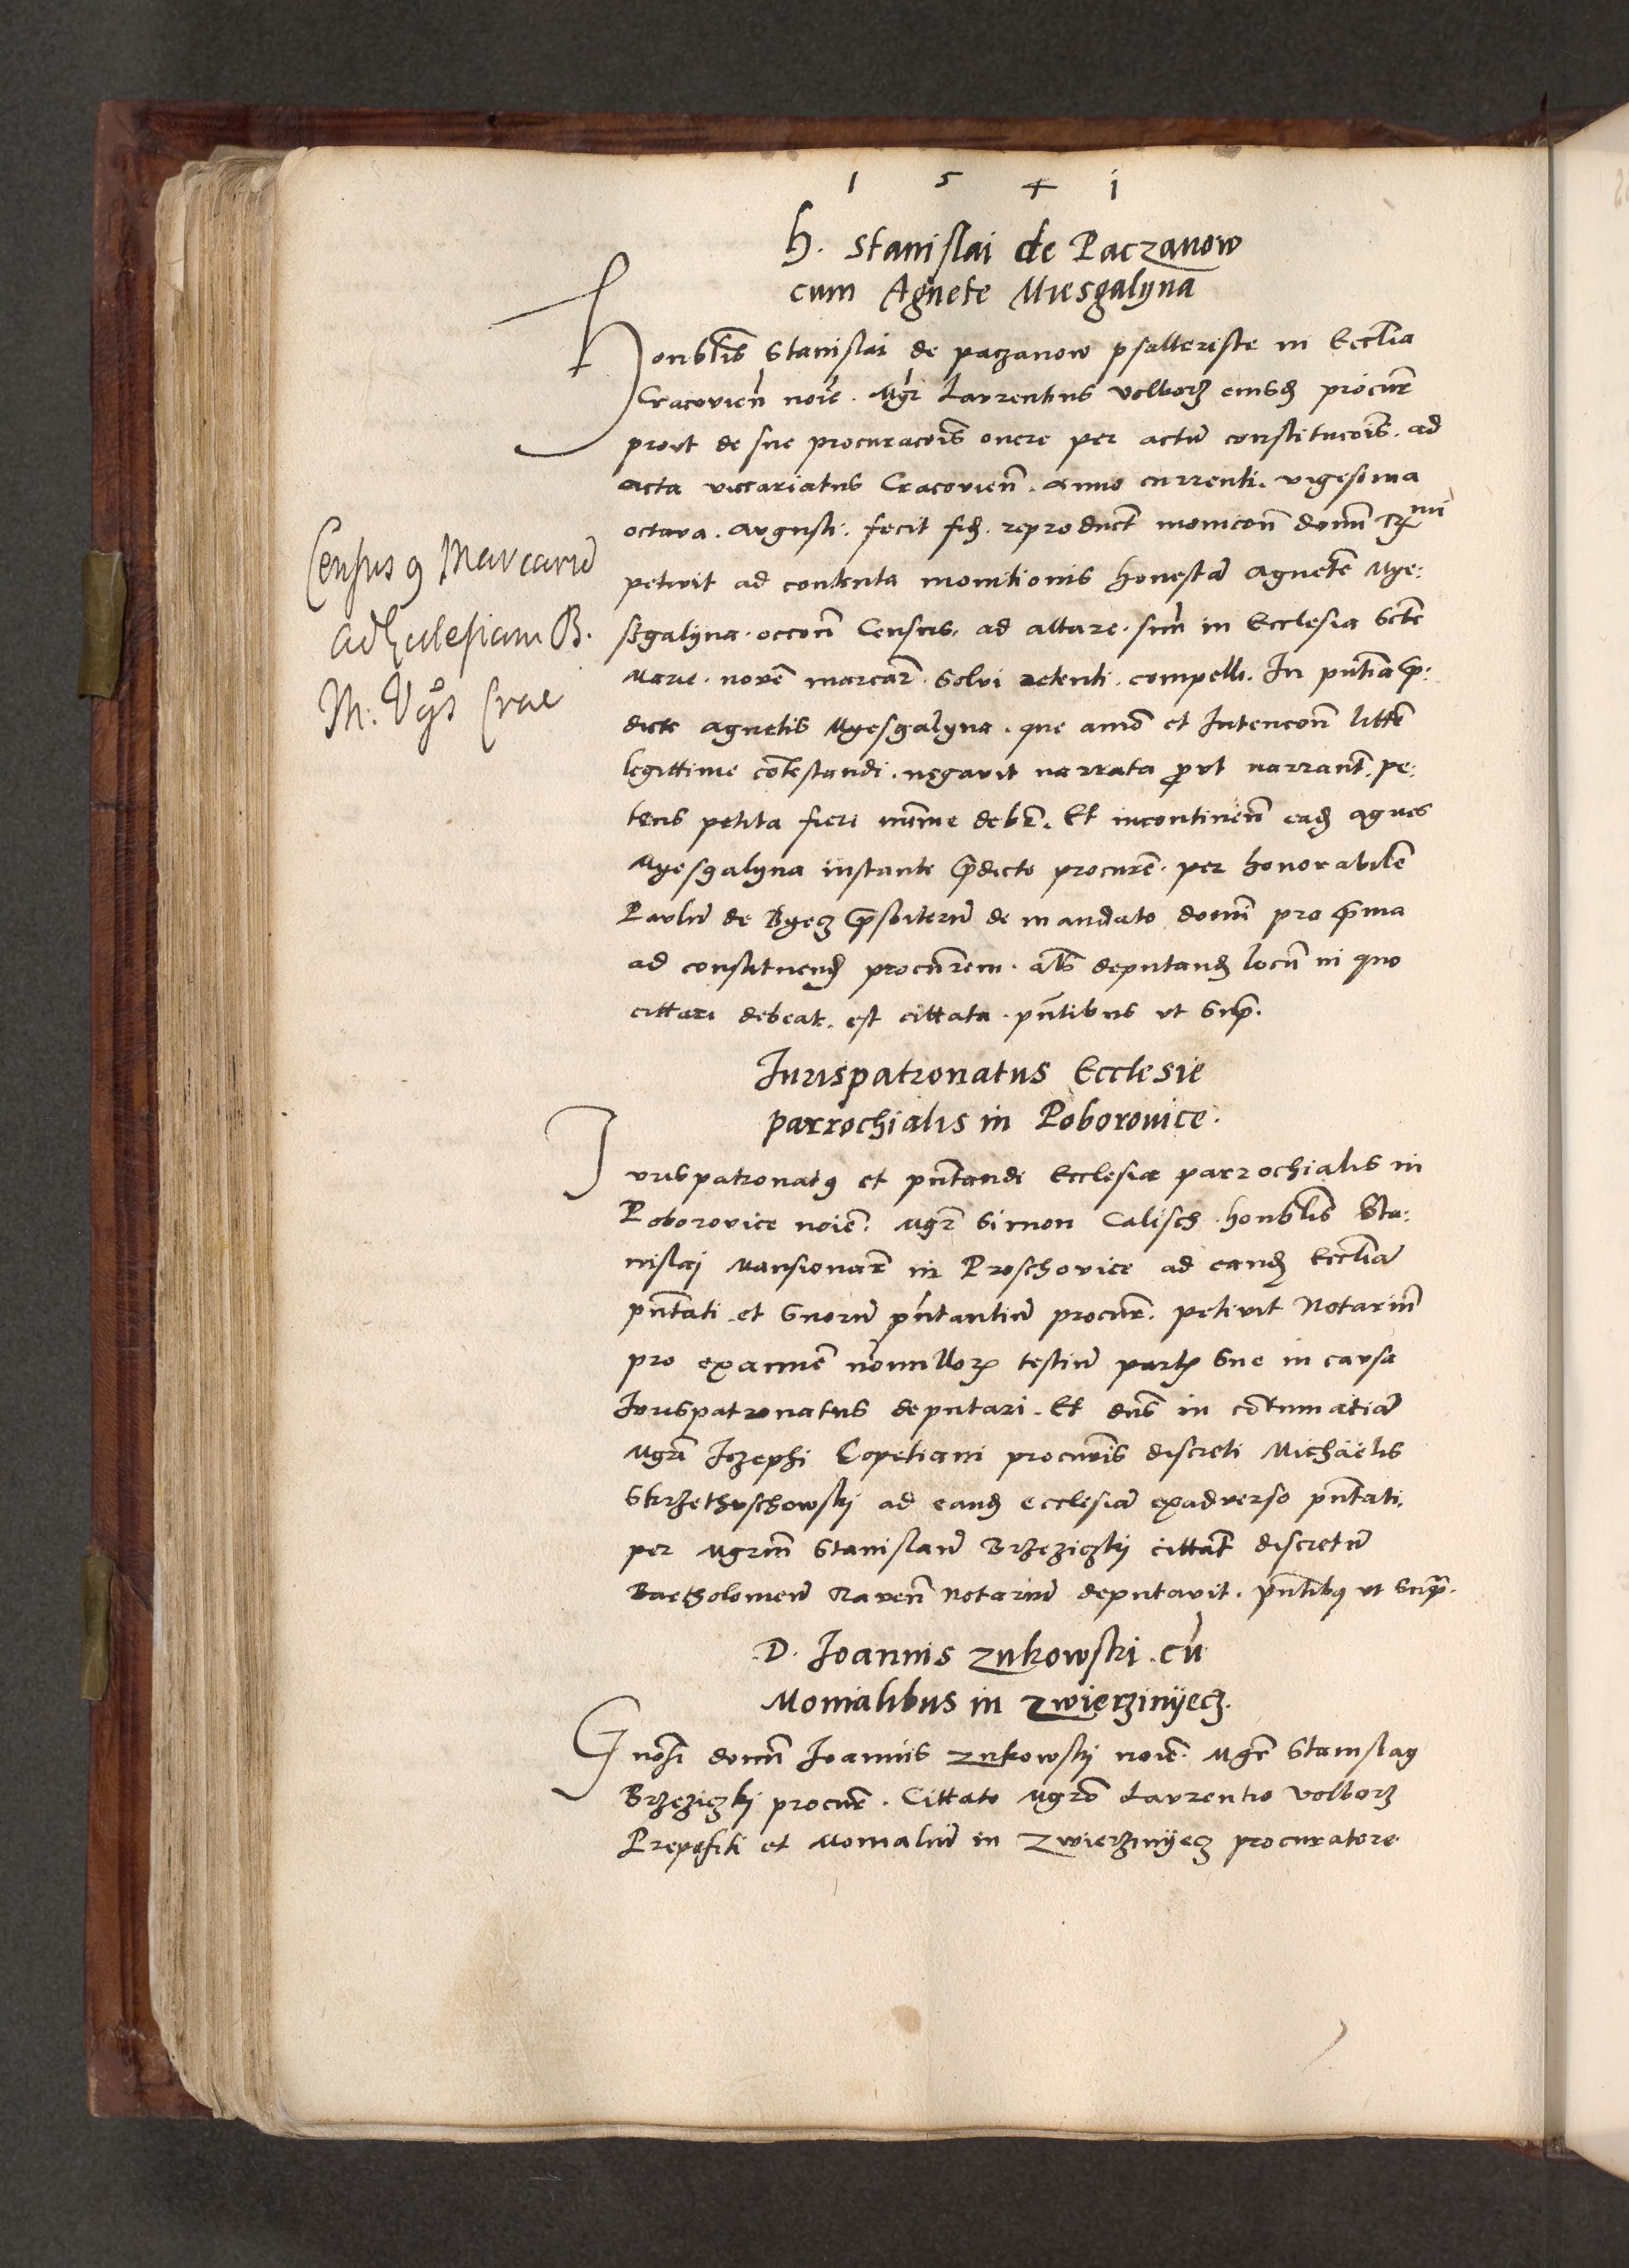 1 5 4 1
H. Stanislai de Paczanow
cum Agnete Miesgalyna
Honblis Stanislai de paczanow psalteriste in Ecclia
Cracovien noie. Mgr Laurentius Volborz eiusd procur
prout de sue procuracois onere per actu constitucois. ad
acta vicariatus Cracovien. Anno currenti. vigesima
octava. Augusti. fecit fid. reproduct monicon domi
petivit ad contenta monitionis honesta Agnete Mye:
sgalyna. occon Census. ad altare. situ in Ecclesia Scte
Marie. novē marcar. Solvi retenti. compelli. In pntia p:
dicte Agnetis Myesgalyna. que animo et Intencon lite
legittime cotestandi. negavit narrata put narrant. pe:
tens petita fieri mime debe. Et incontinen ead Agnes
Myesgalyna instante pdicto procure. per honorabile
Paulu de Byecz psbiteru de mandato domi pro pma
ad constituend procurem. als deputand locu in quo
cittari debeat. est cittata. pntibus ut Sup.
Census 9 Marcaru
ad Eclesiam B.
M. Vgis Crae
Jurispatronatus Ecclesie
parrochialis in Poborovice.
Jurispatronatus et pntandi Ecclesiæ parrochialis in
Poborovice noie. Mgr Simon Calisch. honblis Sta:
nislaj Mansionar in Proschovice ad eand Eccliā
pntati et Suoru pntantiu procur. petivit Notariu
pro examine nonnullor testiu partis Sue in causa
Jurispatronatus deputari. Et dns in cotumatia
Mgri Jozephi Copetiani procuris discreti Michaelis
Skrzethuschowskij ad eand ecclesia exadverso pntati.
per Mgrum Stanislau Brzeziczkij cittat discretu
Bartholomeu Raven Notariu deputavit. pntibus ut Supra.
D. Joannis Zukowski. cu
Monialibus in Zwierzinijecz.
Gnosi domi Joannis Zukowskij noie. Mgr Stanislaus
Brzeziczkij procur. Cittato Mgro Laurentio Volborz
Prepositi et Monialiu in Zwierzinijecz procuratore